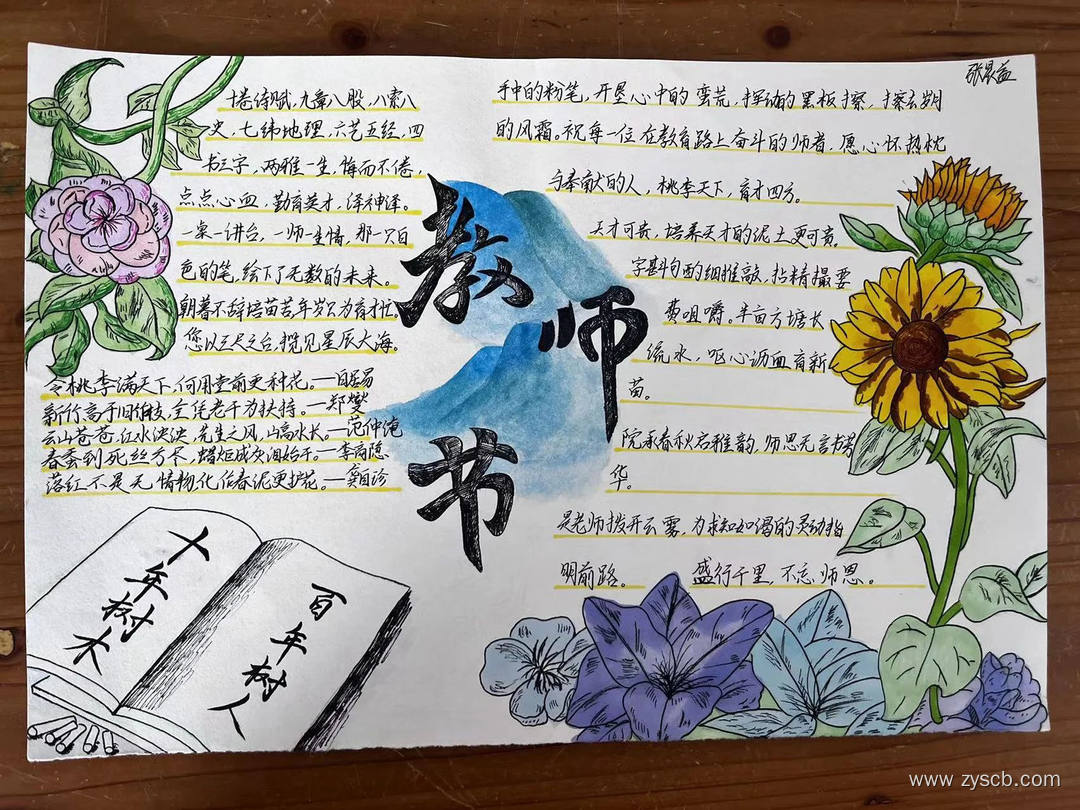 张昊益
十卷诗赋，九章八股，八索八
史，七纬地理，六艺五经，四
书三字，两雅一生，悔而不倦，
点点心血，勤育英才，泽神泽。
一桌一讲台，一师一生情，那一只白
色的笔，绘下了无数的未来。
朝暮不辞培苗苦，年岁只为育才忙。
您以三尺之台，揽见星辰大海。
令桃李满天下，何用堂前更种花。—白居易
新竹高于旧竹枝，全凭老干为扶持。—郑燮
云山苍苍，江水泱泱，先生之风，山高水长。—范仲淹
春蚕到死丝方尽，蜡炬成灰泪始干。—李商隐
落红不是无情物，化作春泥更护花。—龚自珍
教
师
节
手中的粉笔，开垦心中的蛮荒，挥动的黑板擦，擦去朔
的风霜。祝每一位在教育路上奋斗的师者，愿心怀热枕
与奉献的人，桃李天下，育才四方。
天才可贵，培养天才的泥土更可贵。
字斟句酌细推敲，拈精撮要
费咀嚼。半亩方塘长
流水，呕心沥血育新
苗。
院承春秋名雅韵，师恩无言书芳
华。
是老师拨开云雾，为求知如渴的灵动指
明前路。 盛行千里，不忘师恩。
十年树木
百年树人
www.zyscb.com